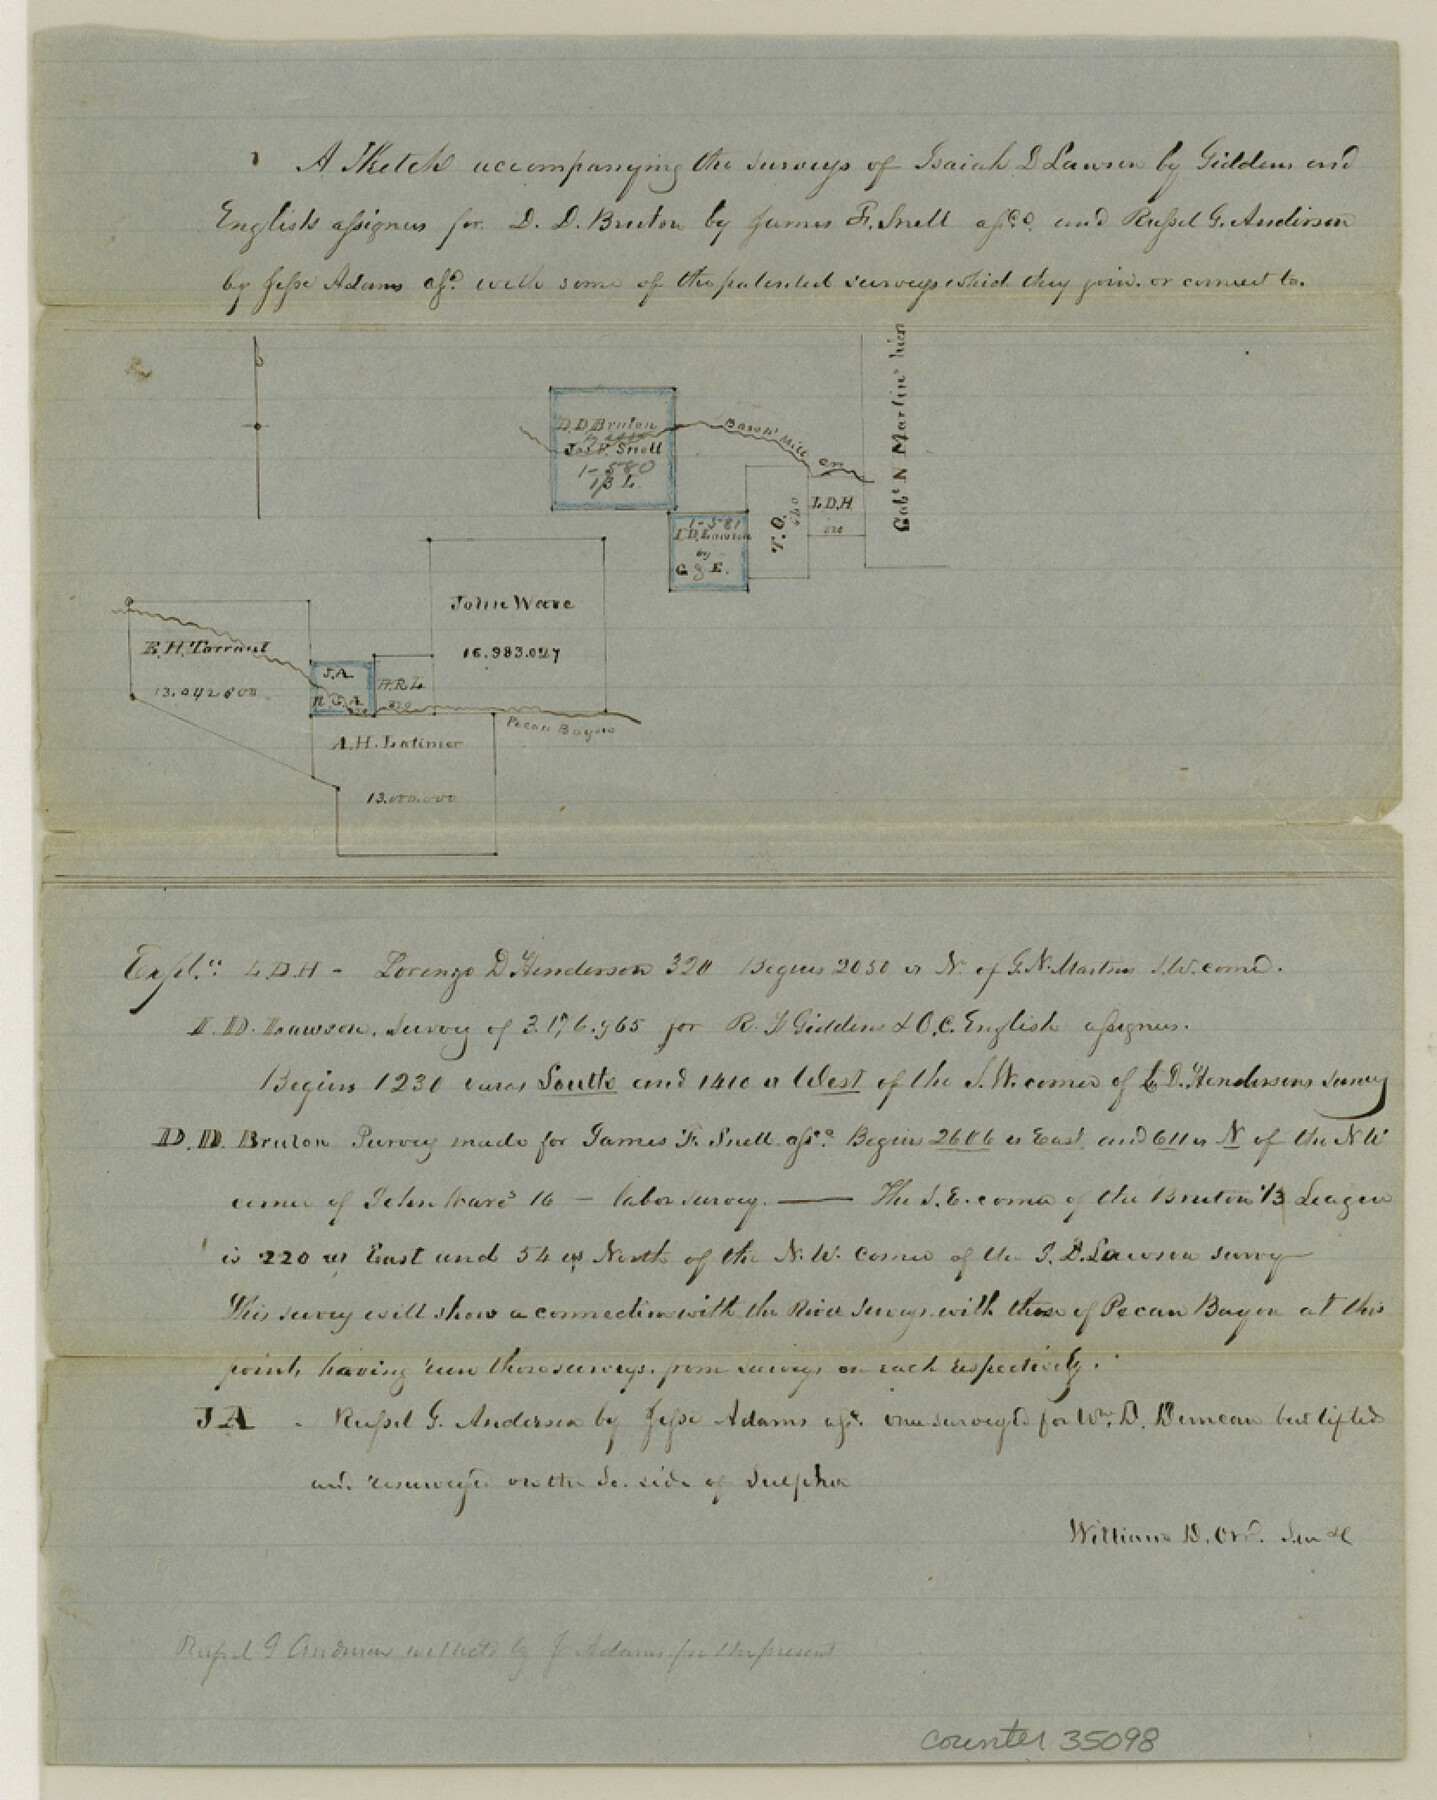 A Sketch accompanying the surveys of Isaiah D Lawson by Giddens and
English assignees for D. D. Bruton by James F. Snell assee and Russel G. Anderson
by Jesse Adams asse. with some of the patented surveys which they join or connect to.
D.D. Bruton
by
Jas F. Snell
1-580
1/3 L.
Bason Mill Cr.
Gabl N Martin hier
L.D.H.
320
T.O.
640
1-581
I D. Lawson
by
G & E.
John Ware
16.983.027
E.H. Tarrant
13.042.800
J.A.
R G A
H.R L
320
Pecan Bayou
A.H. Latimer
13.000.000
Expl.n L.D.H - Lorenzo D Henderson 320 Begins 2050 vs N. of G.N. Martins S.W. corner.
I. D. Lawson. Survey of 3.176.965 for R. Giddens & O.C. English assignees.
Begins 1230 varas South and 1410 vs West of the S.W. corner of L D. Hendersons survey
D. D. Bruton Survey made for James F. Snell asse Begins 2606 vs East and 611 vs N of the N W
corner of John Ware's 16 — labor survey. — The S.E. corner of the Bruton 1/3 League
is 220 vs East and 54 vs North of the N.W. Corner of the I. D. Lawson survey
This survey will show a connection with the River Surveys with those of Pecan Bayou at this
point, having run those surveys from surveys on each respectively.
J A - Russel G. Anderson by Jesse Adams asse. once surveyed for Wm. D. Duncan but lifted
and resurveyed on the So. side of Sulphur
William B. Orr.
Russel G Anderson by J Adams for the present
counter 35098